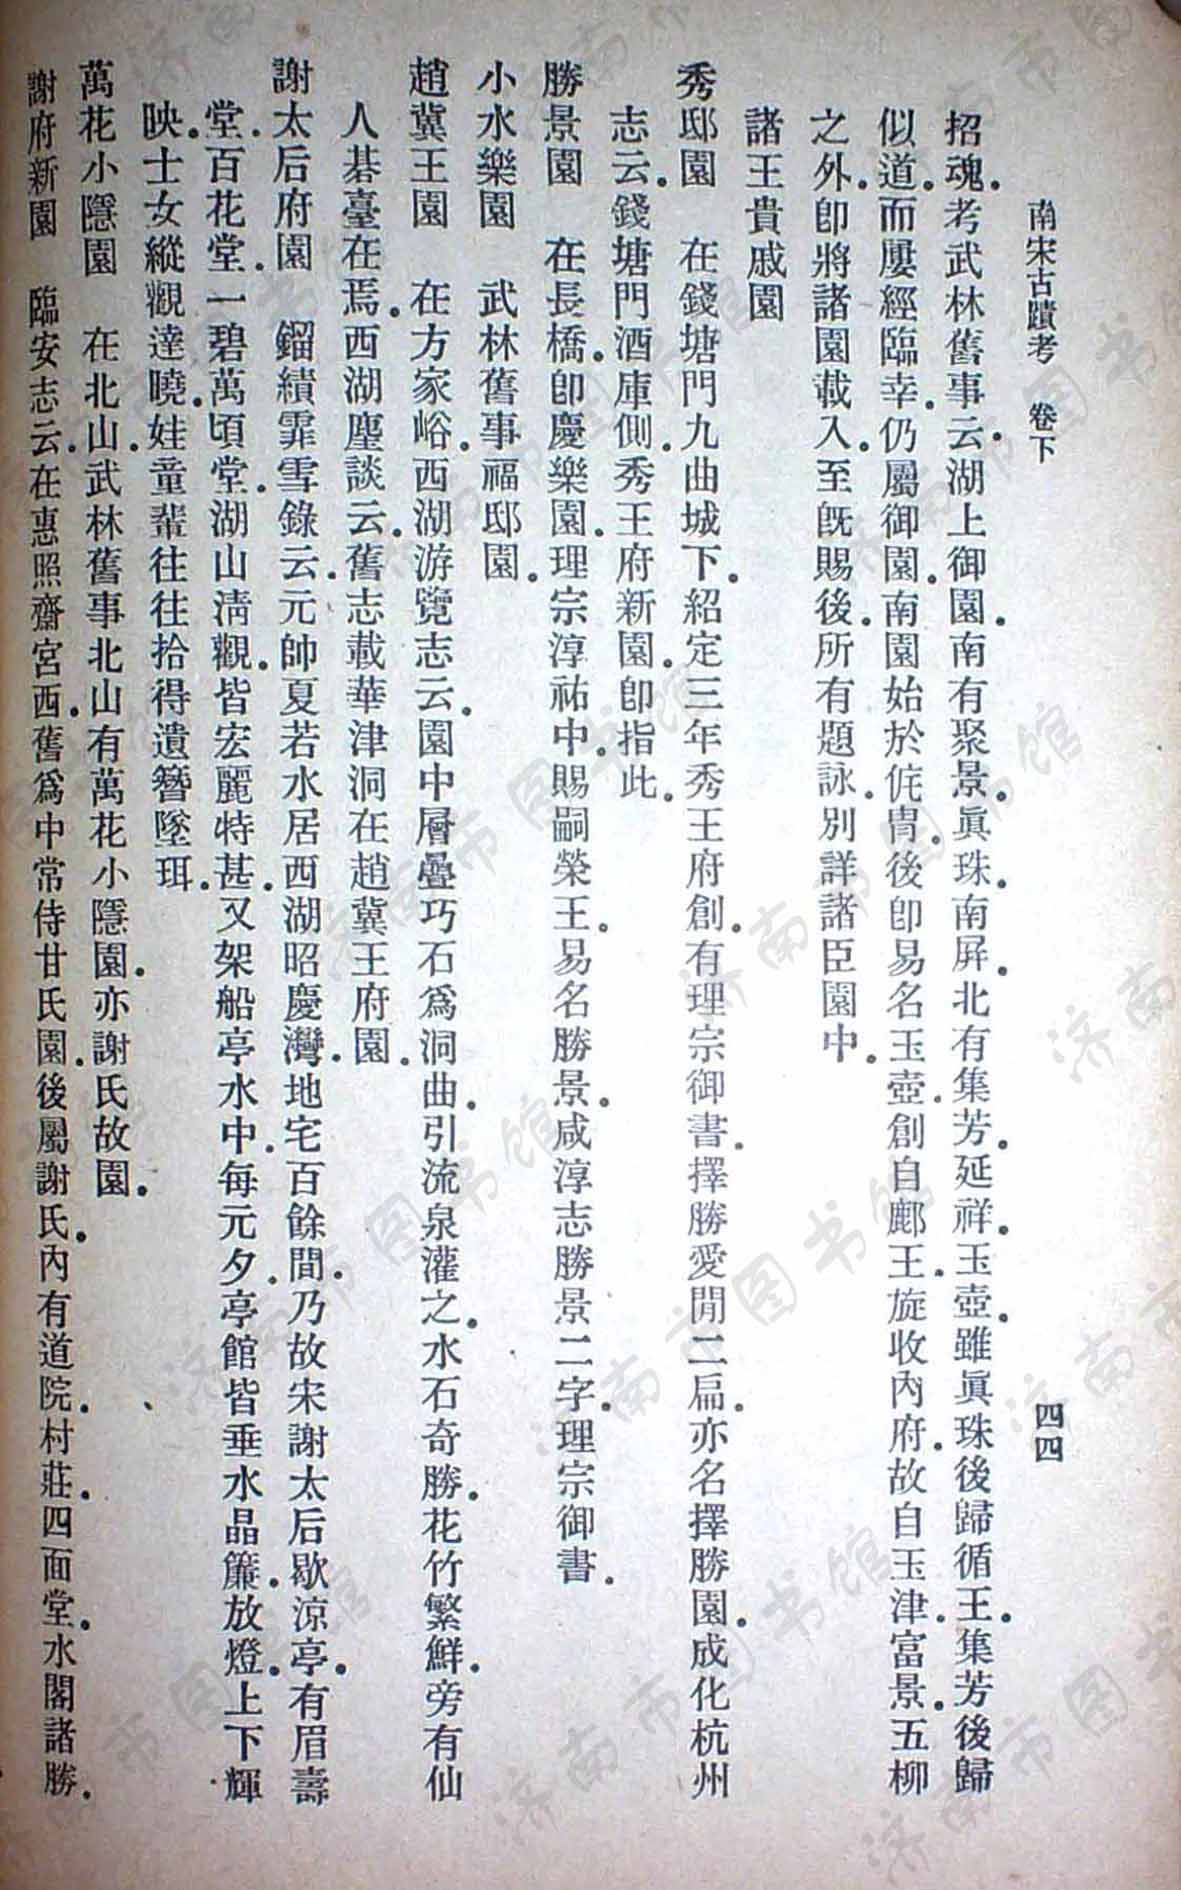 南宋古蹟考　卷下　四四
招魂．考武林舊事云．湖上御園．南有聚景．眞珠．南屏．北有集芳．延祥．玉壺．雖眞珠後歸循王．集芳後歸
似道．而屢經臨幸．仍屬御園．南園始於侂胄．後卽易名玉壺．創自鄜王．旋收內府．故自玉津．富景．五柳
之外．卽將諸園載入．至旣賜後．所有題詠．別詳諸臣園中．
諸王貴戚園
秀邸園　在錢塘門九曲城下．紹定三年秀王府創．有理宗御書．擇勝愛閒二扁．亦名擇勝園．成化杭州
志云．錢塘門酒庫側．秀王府新園．卽指此．
勝景園　在長橋．卽慶樂園．理宗淳祐中．賜嗣榮王．易名勝景．咸淳志勝景二字．理宗御書．
小水樂園　武林舊事福邸園．
趙冀王園　在方家峪．西湖游覽志云．園中層疊巧石爲洞曲．引流泉灌之．水石奇勝．花竹繁鮮．旁有仙
人碁臺在焉．西湖麈談云．舊志載華津洞在趙冀王府園．
謝太后府園　鎦績霏雪錄云．元帥夏若水居西湖昭慶灣．地宅百餘間．乃故宋謝太后歇涼亭．有眉壽
堂．百花堂．一碧萬頃堂．湖山淸觀．皆宏麗特甚．又架船亭水中．每元夕．亭館皆垂水晶簾．放燈．上下輝
映．士女縱觀達曉．娃童輩往往拾得遺簪墜珥．
萬花小隱園　在北山．武林舊事北山有萬花小隱園．亦謝氏故園．
謝府新園　臨安志云．在惠照齋宮西．舊爲中常侍甘氏園．後屬謝氏．內有道院．村莊．四面堂．水閣諸勝．